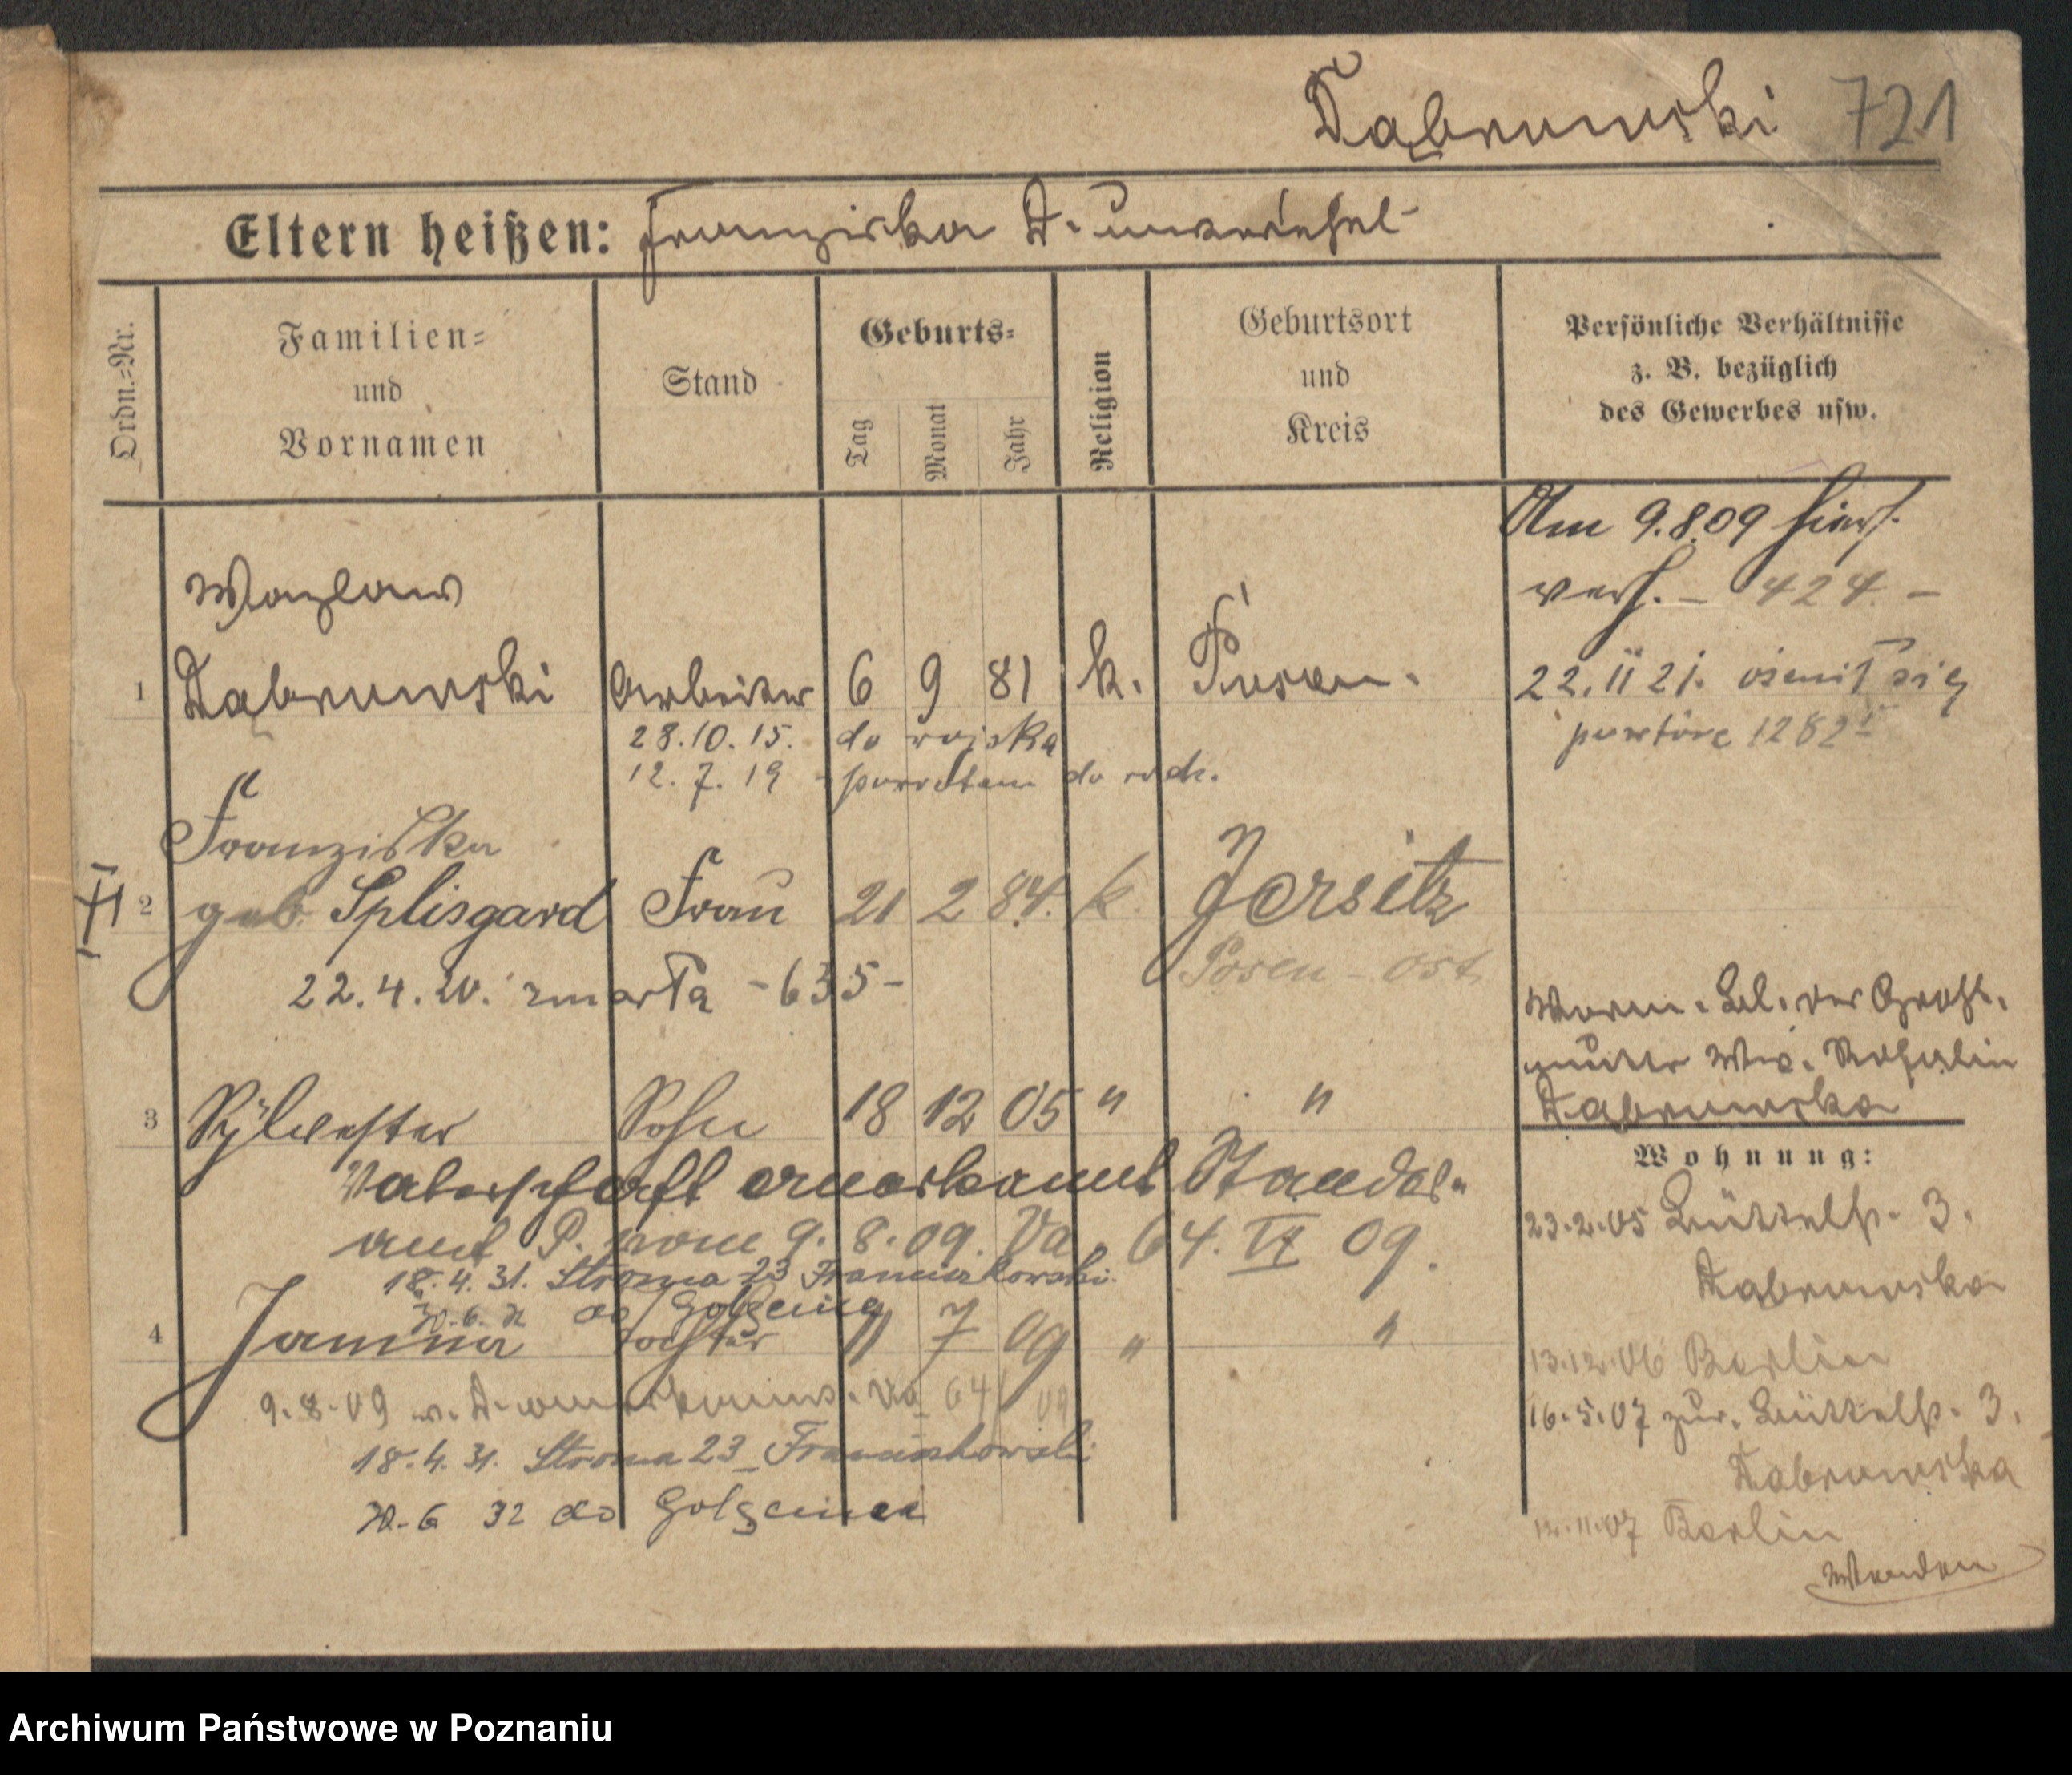 Dąbrowski 721
Eltern heißen: Franziska D. unverehel
Ordn.=Nr.
Familien=
und
Vornamen
Stand
Geburts=
Tag
Monat
Jahr
Religion
Geburtsort
und
Kreis
Persönliche Verhältnisse
z. B. bezüglich
des Gewerbes usw.
Am 9.8.09 hier
verh. - 424 -
Wazlaw
1 Dąbrowski Arbeiter 6 9 81 k. Posen.
22.II 21. ożenił się
powtóre 1282
28.10.15. do wojska
12. 7. 19 - powrotem do
Franziska
2 geb Splisgard Frau 21 2 84. k. Jersitz
Posen - Ost
22.4.20. zmarła - 635 -
Vorm. der Groß-
mutter Ww.
Dąbrowska
3 Sylvester Sohn 18 12 05 " "
Vaterschaft anerkannt Standes-
amt P. vom 9. 8. 09. Va. 64. VI 09.
18. 4. 31. Stroma 23 Franciszkowski.
30. 6. 32 do Golęcina
4 Janina Tochter 11 7 09 " "
9. 8. 09 v. D. anerkannt. Va 64/09
18. 4. 31. Stroma 23 - Franciszkowski
30. 6 32 do Golęcina
Wohnung:
23.2.05 3.
Dąbrowska
13.12.06 Berlin
16.5.07 zur. 3.
Dąbrowska
11.07 Berlin
Wenden
Archiwum Państwowe w Poznaniu